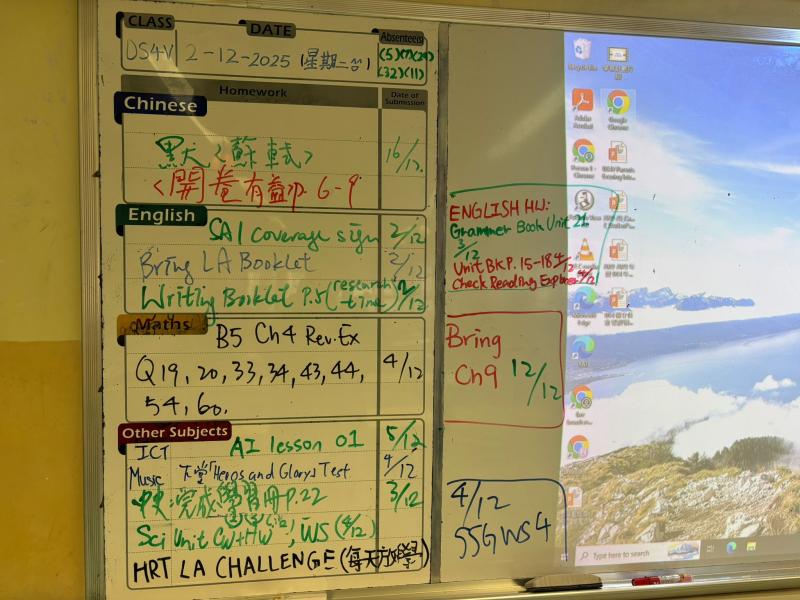 CLASS
DATE
Absentees
DS4V
2-12-2025 (星期二)
(5)(7)(29)
(32)(11)
Homework
Date of Submission
Chinese
默大〈蘇軾〉 16/12
〈開卷有益〉p. 6-9
English
SA1 coverage sign 2/12
Bring LA Booklet 2/12
Writing Booklet P.5 (research-time) /12
Maths
B5 Ch4 Rev.Ex
Q19, 20, 33, 34, 43, 44, 4/12
54, 60.
Other Subjects
ICT AI lesson 01 5/12
Music 天堂「Heros and Glory」Test 4/12
完成學習冊P.22 3/12
Sci Unit CW+HW, WS (4/12)
HRT LA CHALLENGE (每天
ENGLISH HW:
Grammer Book Unit 21
3/12
Unit BK P. 15-18 4/12
Check Reading Explorer 4/12
Bring
Ch9 12/12
4/12
SSG WS 4
Recycle Bin
Adobe Acrobat
Google Chrome
Type here to search